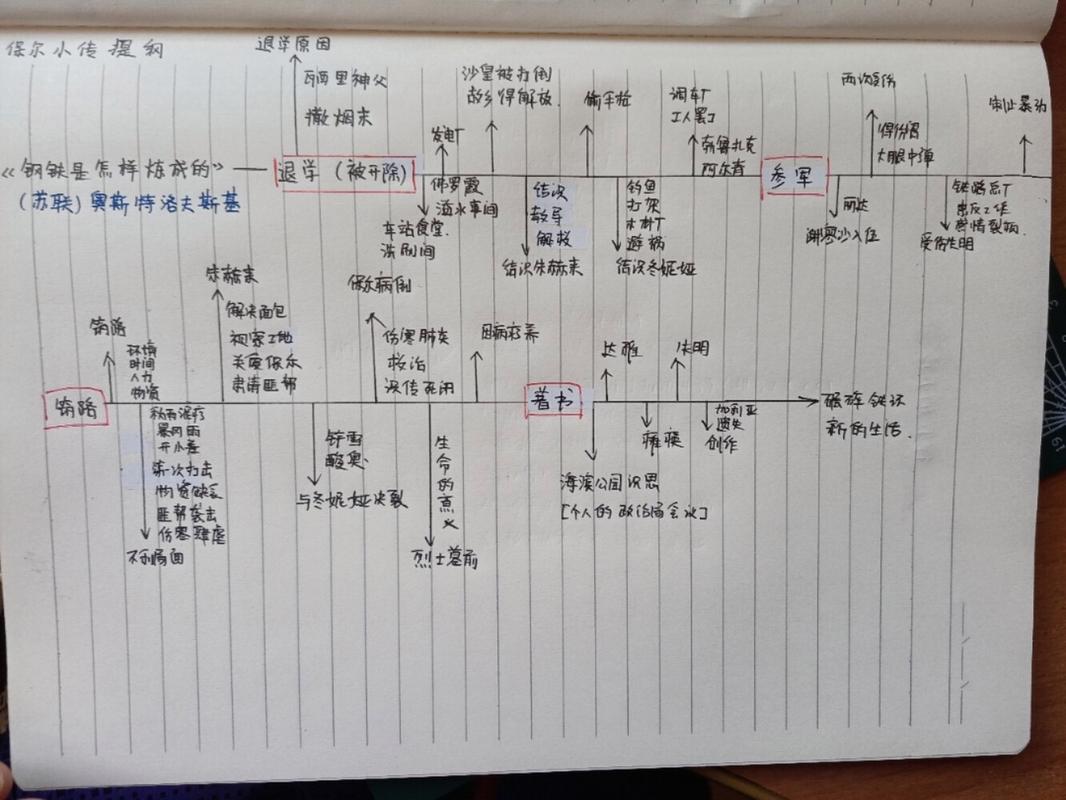 保尔小传提纲
《钢铁是怎样炼成的》
(苏联)奥斯特洛夫斯基
退学原因
瓦西里神父
撒烟末
退学(被开除)
发电厂
佛罗霞
溢水事间
车站食堂
洗刷间
沙皇被打倒
故乡得解放
结识
教导
解救
结识朱赫来
偷手枪
钓鱼
打架
木材厂
避祸
结识冬妮娅
调车厂
工人罢工
勃鲁扎克
阿尔青
参军
两次负伤
得伤寒
大眼中弹
丽达
谢寥沙入伍
铁路总厂
受伤失明
制止暴动
筑路
筑路
环境
时间
人力
物资
秋雨泥泞
暴风雨
开小差
第一次打击
物资缺乏
匪帮袭击
伤寒肆虐
不利局面
朱赫来
解决面包
视察工地
关爱保尔
肃清匪帮
铲雪
酸臭
与冬妮娅决裂
保尔病倒
伤寒肺炎
救治
误传死讯
生命的意义
烈士墓前
因病疗养
著书
海滨公园沉思
[个人的政治局会议]
达雅
瘫痪
失明
加利亚
遗失
创作
砸碎铁环
新的生活